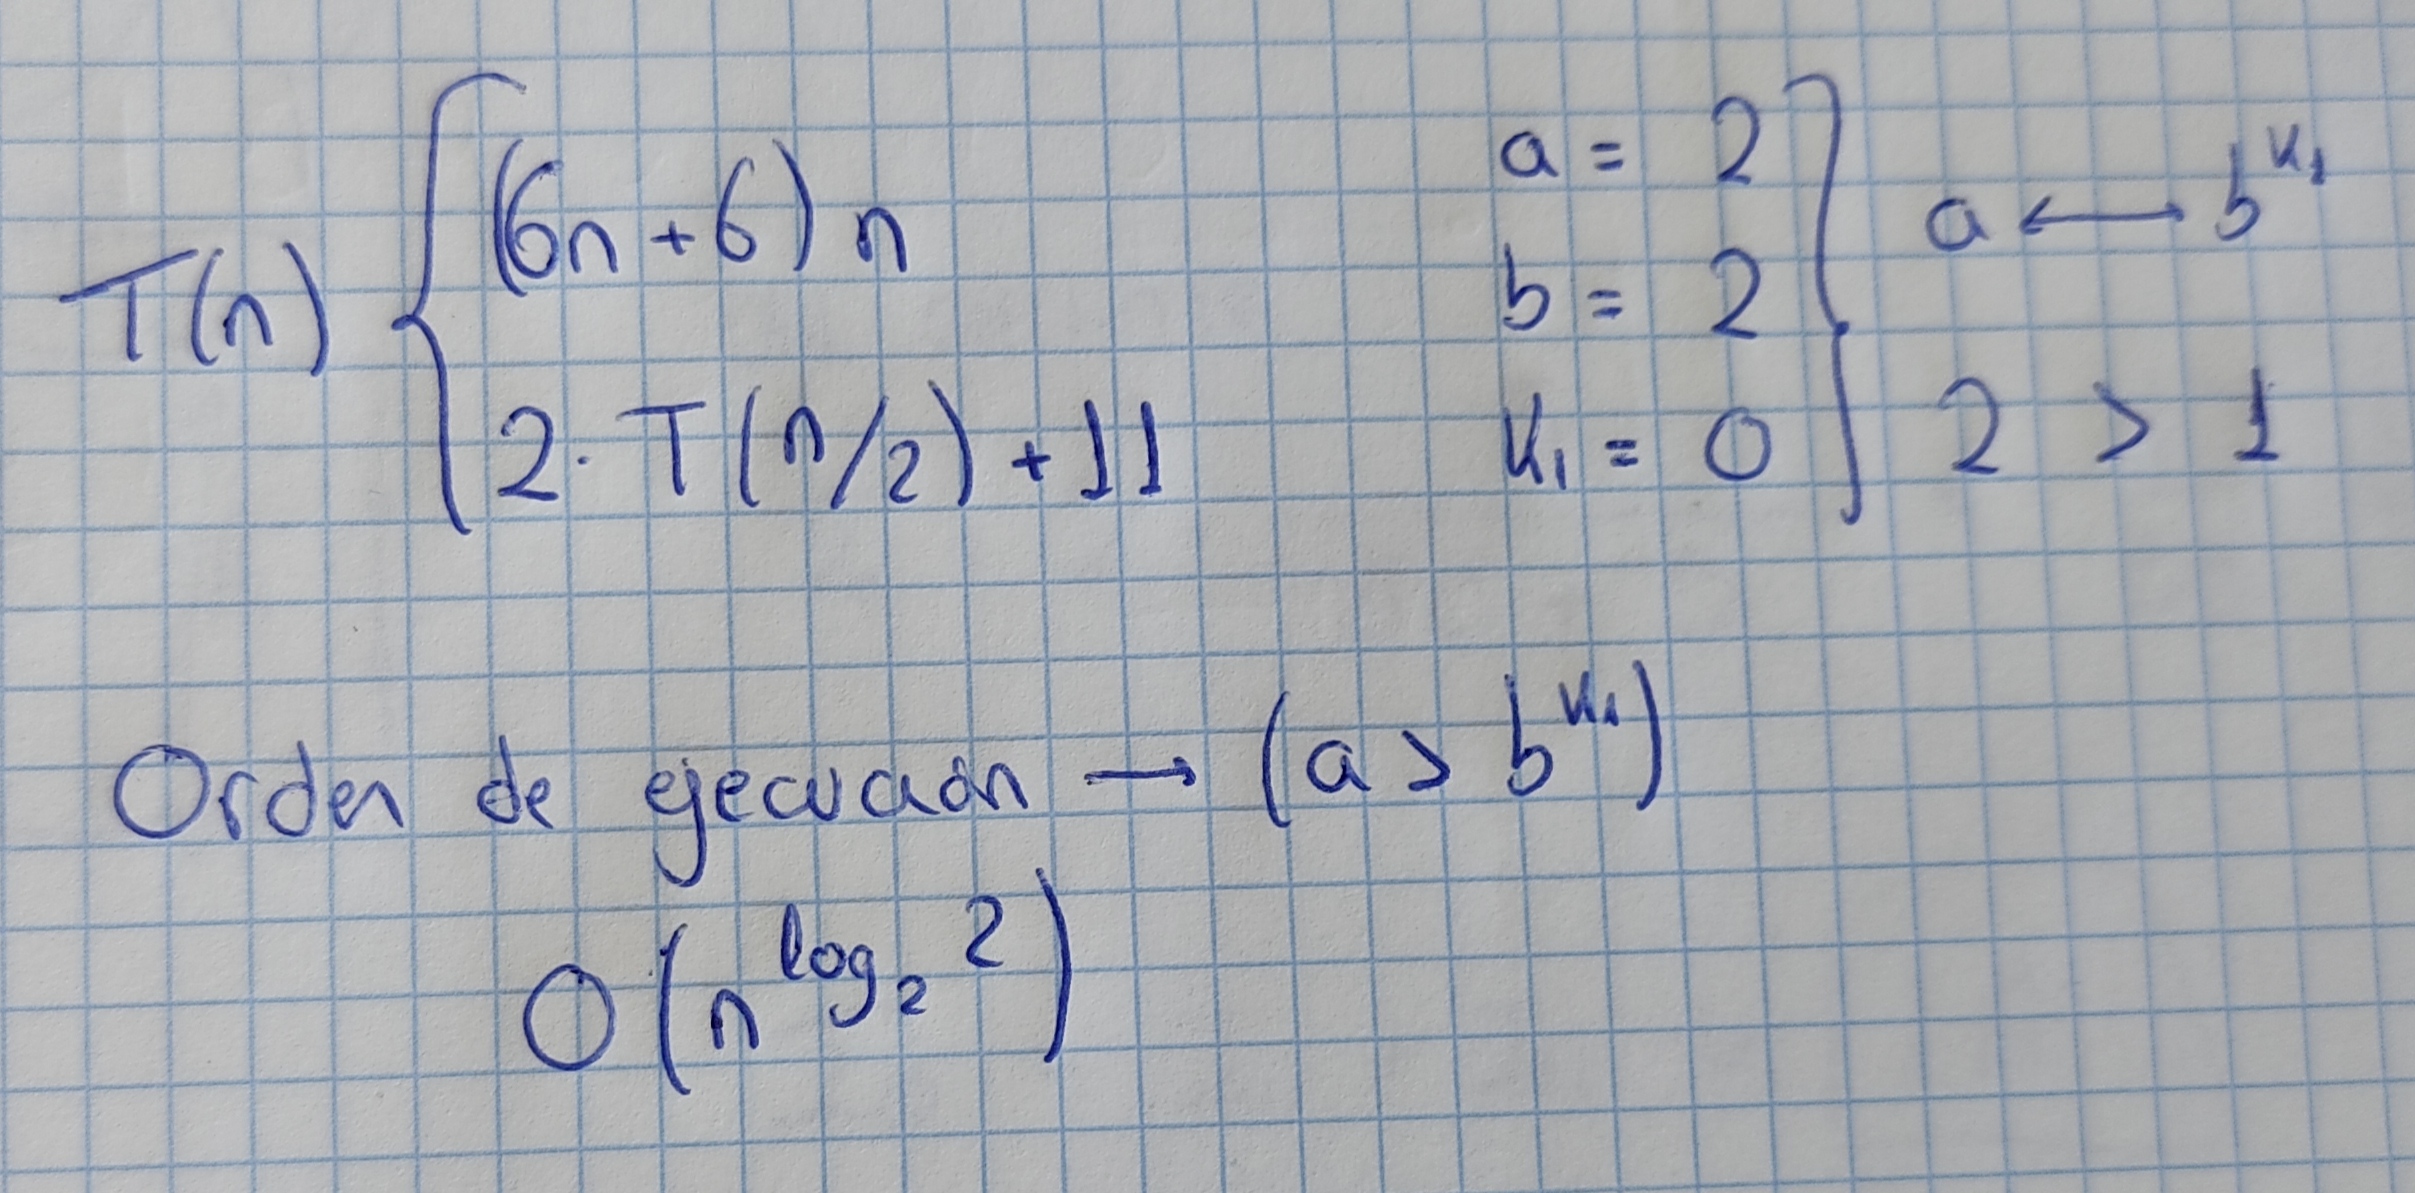 T(n) { (6n + 6) n
2 · T(n/2) + 11
a = 2
b = 2
K₁ = 0
a ⟷ b^K₁
2 > 1
Orden de ejecución → (a > b^K₁)
O(n^log₂ 2)